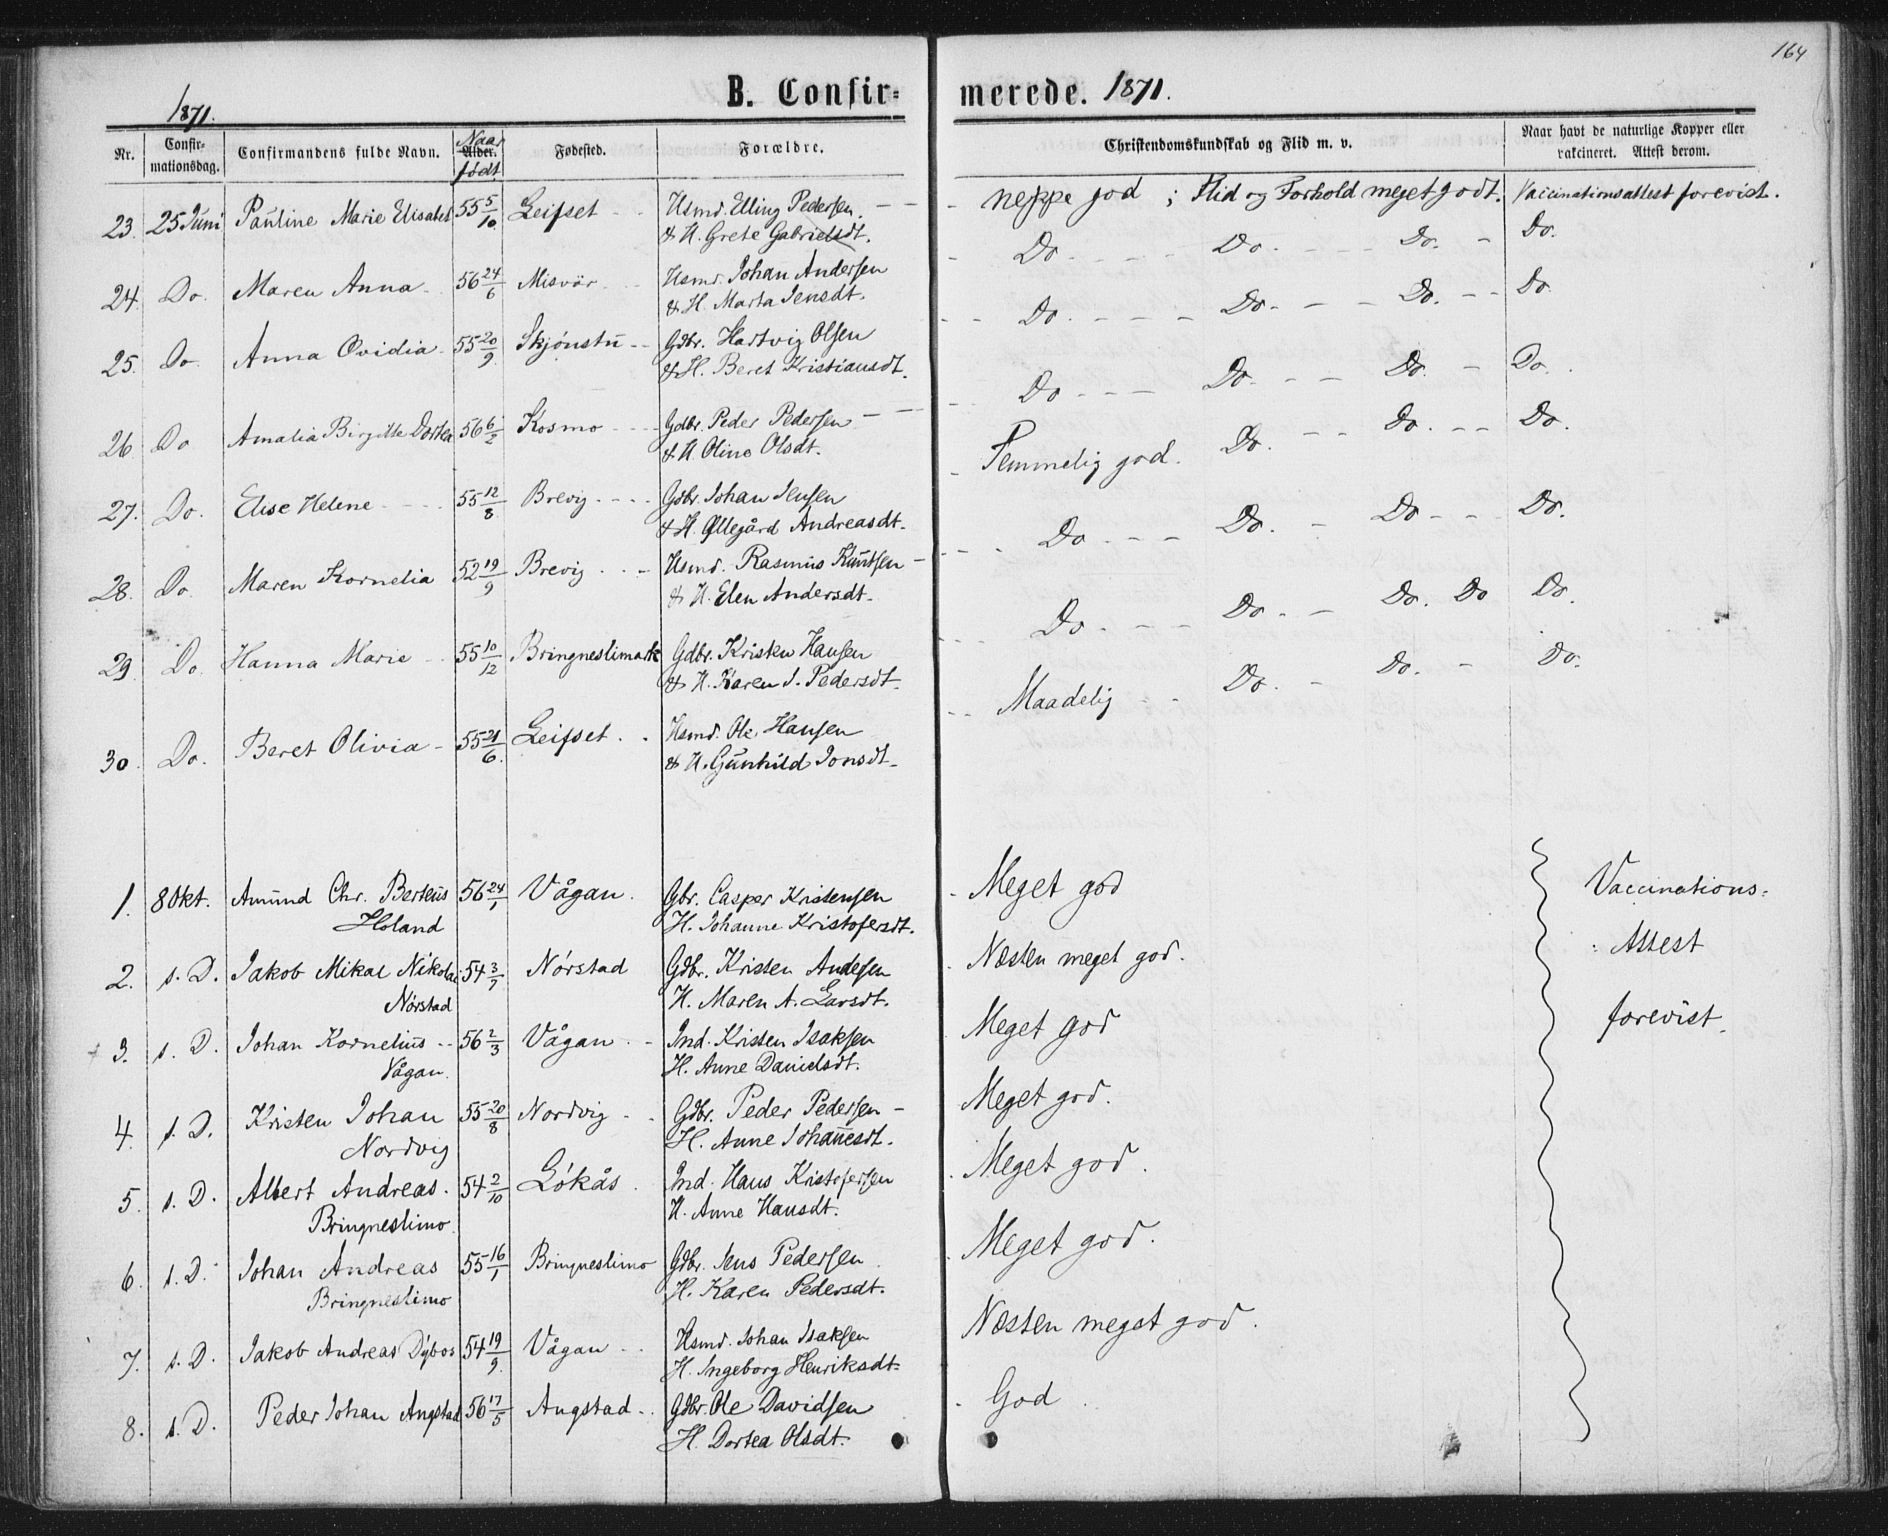 164
1871.
B. Confir- merede. 1871.
Nr. Confir-mationsdag. Confirmandens fulde Navn. Alder. Naar født Fødested. Forældre. Christendomskundskab og Flid m. v. Naar havt de naturlige Kopper eller vakcineret. Attest derom.
23. 25 Juni Pauline Marie Elisabet 55 5/10 Leifset - - Husmd. Elling Pedersen. - - neppe god ; Flid og Forhold meget godt. Vaccinationsattest forevist.
& H. Grete Gabrielsdt.
24. Do. Maren Anna 56 24/6 Misvær Husmd. Johan Andersen - Do - - - Do. - - - Do. - Do.
& H. Marta Jensdt.
25. Do. Anna Ovidia 55 20/9 Skjønstu - - Gdbr. Hartvig Olsen - - Do. - - - Do. - - Do. - - Do.
& H. Beret Kristiansdt.
26. Do Amalia Birgitte Dortea 56 6/2 Kosmo - - Gdbr. Peder Pedersen - - Do - - - Do. - - Do. - Do.
& H. Oline Olsdt.
27. Do. Elise Helene - - - 55 12/8 Brevig - - - Gdbr. Johan Jensen - Temmelig god. Do. - - Do. - - Do.
& H. Øllegård Andreasdt.
28. Do. Maren Kornelia 52 19/9 Brevig - - Husmd. Rasmus Knutsen - - - Do - - - Do. - Do - - - Do.
& H. Elen Andersdt.
29. Do. Hanna Marie - 55 10/12 Bringneslimark Gdbr. Kristen Hansen - - Do. - - - Do. - - Do. Do Do.
& H. Karen J. Pedersdt.
30. Do. Beret Olivia - 55 21/6. Leifset - - Husmd. Ole Hansen - - Maadelig - - Do. - Do. - Do.
& H. Gunhild Jonsdt.
1. 8 Okt. Amund Chr. Berteus 56 24/1 Vågan. Gbr. Casper Kristensen - Meget god Vaccinations-
Holand H. Johanne Kristofersdt.
2. s. D. Jakob Mikal Nikolai 54 3/7 Nørstad Gdbr. Kristen Andesen - Næsten meget god. Attest
Nørstad H. Maren A. Larsdt.
3. s. D. Johan Kornelius - - 56 2/3 Vågan - - Ind. Kristen Isaksen Meget god forevist.
Vågan. H. Anne Danielsdt.
4. s. D. Kristen Johan 55 20/8 Nordvig - - Gdbr. Peder Pedersen - Meget god.
Nordvig H. Anne Johannesdt.
5. s. D. Albert Andreas. 54 2/10 Løkås. Ind. Hans Kristofersen - Meget god.
Bringneslimo H. Anne Hansdt.
6. s. D. Johan Andreas 55 16/1 Bringneslimo Gdbr. Jens Pedersen - Meget god.
Bringneslimo H. Karen Pedersdt.
7. s. D. Jakob Andreas Dybos 54 19/9. Vågan - - Husmd. Johan Isaksen Næsten meget god.
H. Ingeborg Henriksdt.
8. s. D. Peder Johan Angstad 56 17/5 Angstad - - Gdbr Ole Davidsen - God
H. Dortea Olsdt.